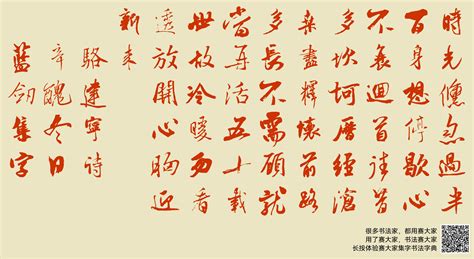 時光儵忽過半
百身想停歇心
不衰迴首往昔
多坎坷曆經滄
桑盡釋懷前路
多長不需顧就
當再活五十載
世故冷暖勿看
透放開心胸迎
新來
駱建寧詩
辛醜今日
藍劍集字
很多书法家，都用赛大家
用了赛大家，书法赛大家
长按体验赛大家集字书法字典